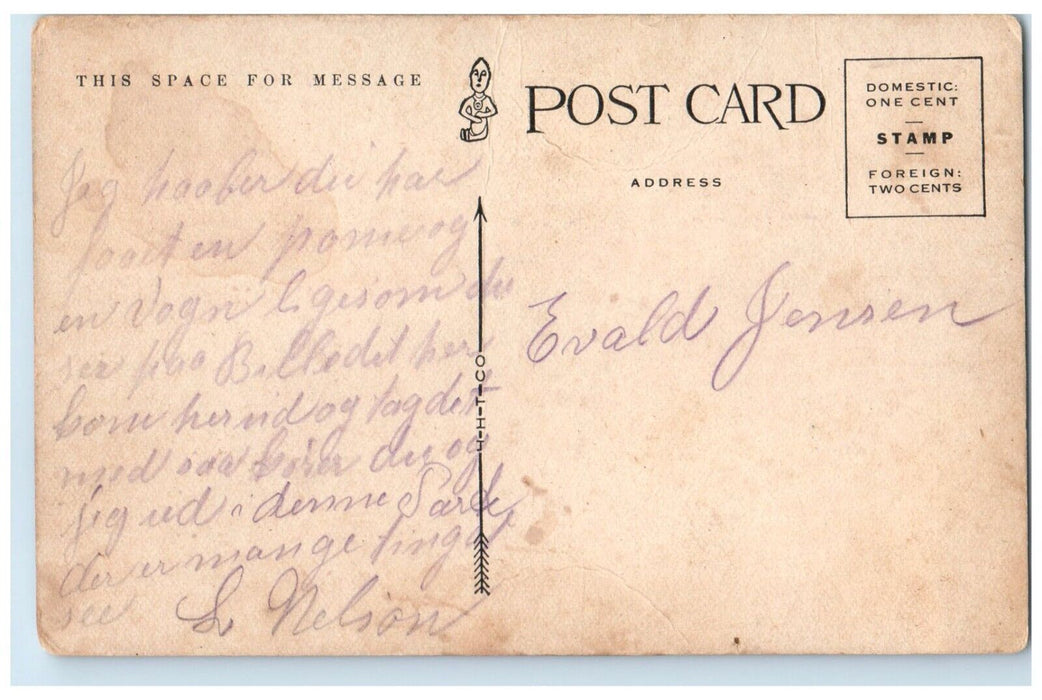 THIS SPACE FOR MESSAGE
Jeg haaber du har
faaet en ponie og
en Vogn ligesom du
ser paa Billedet her
kom her ud og tag det
med saa kører du og
jeg ud i denne Park
der er mange ting at
see
L Nelson
H-T-CO
POST CARD
ADDRESS
DOMESTIC:
ONE CENT
STAMP
FOREIGN:
TWO CENTS
Evald Jensen